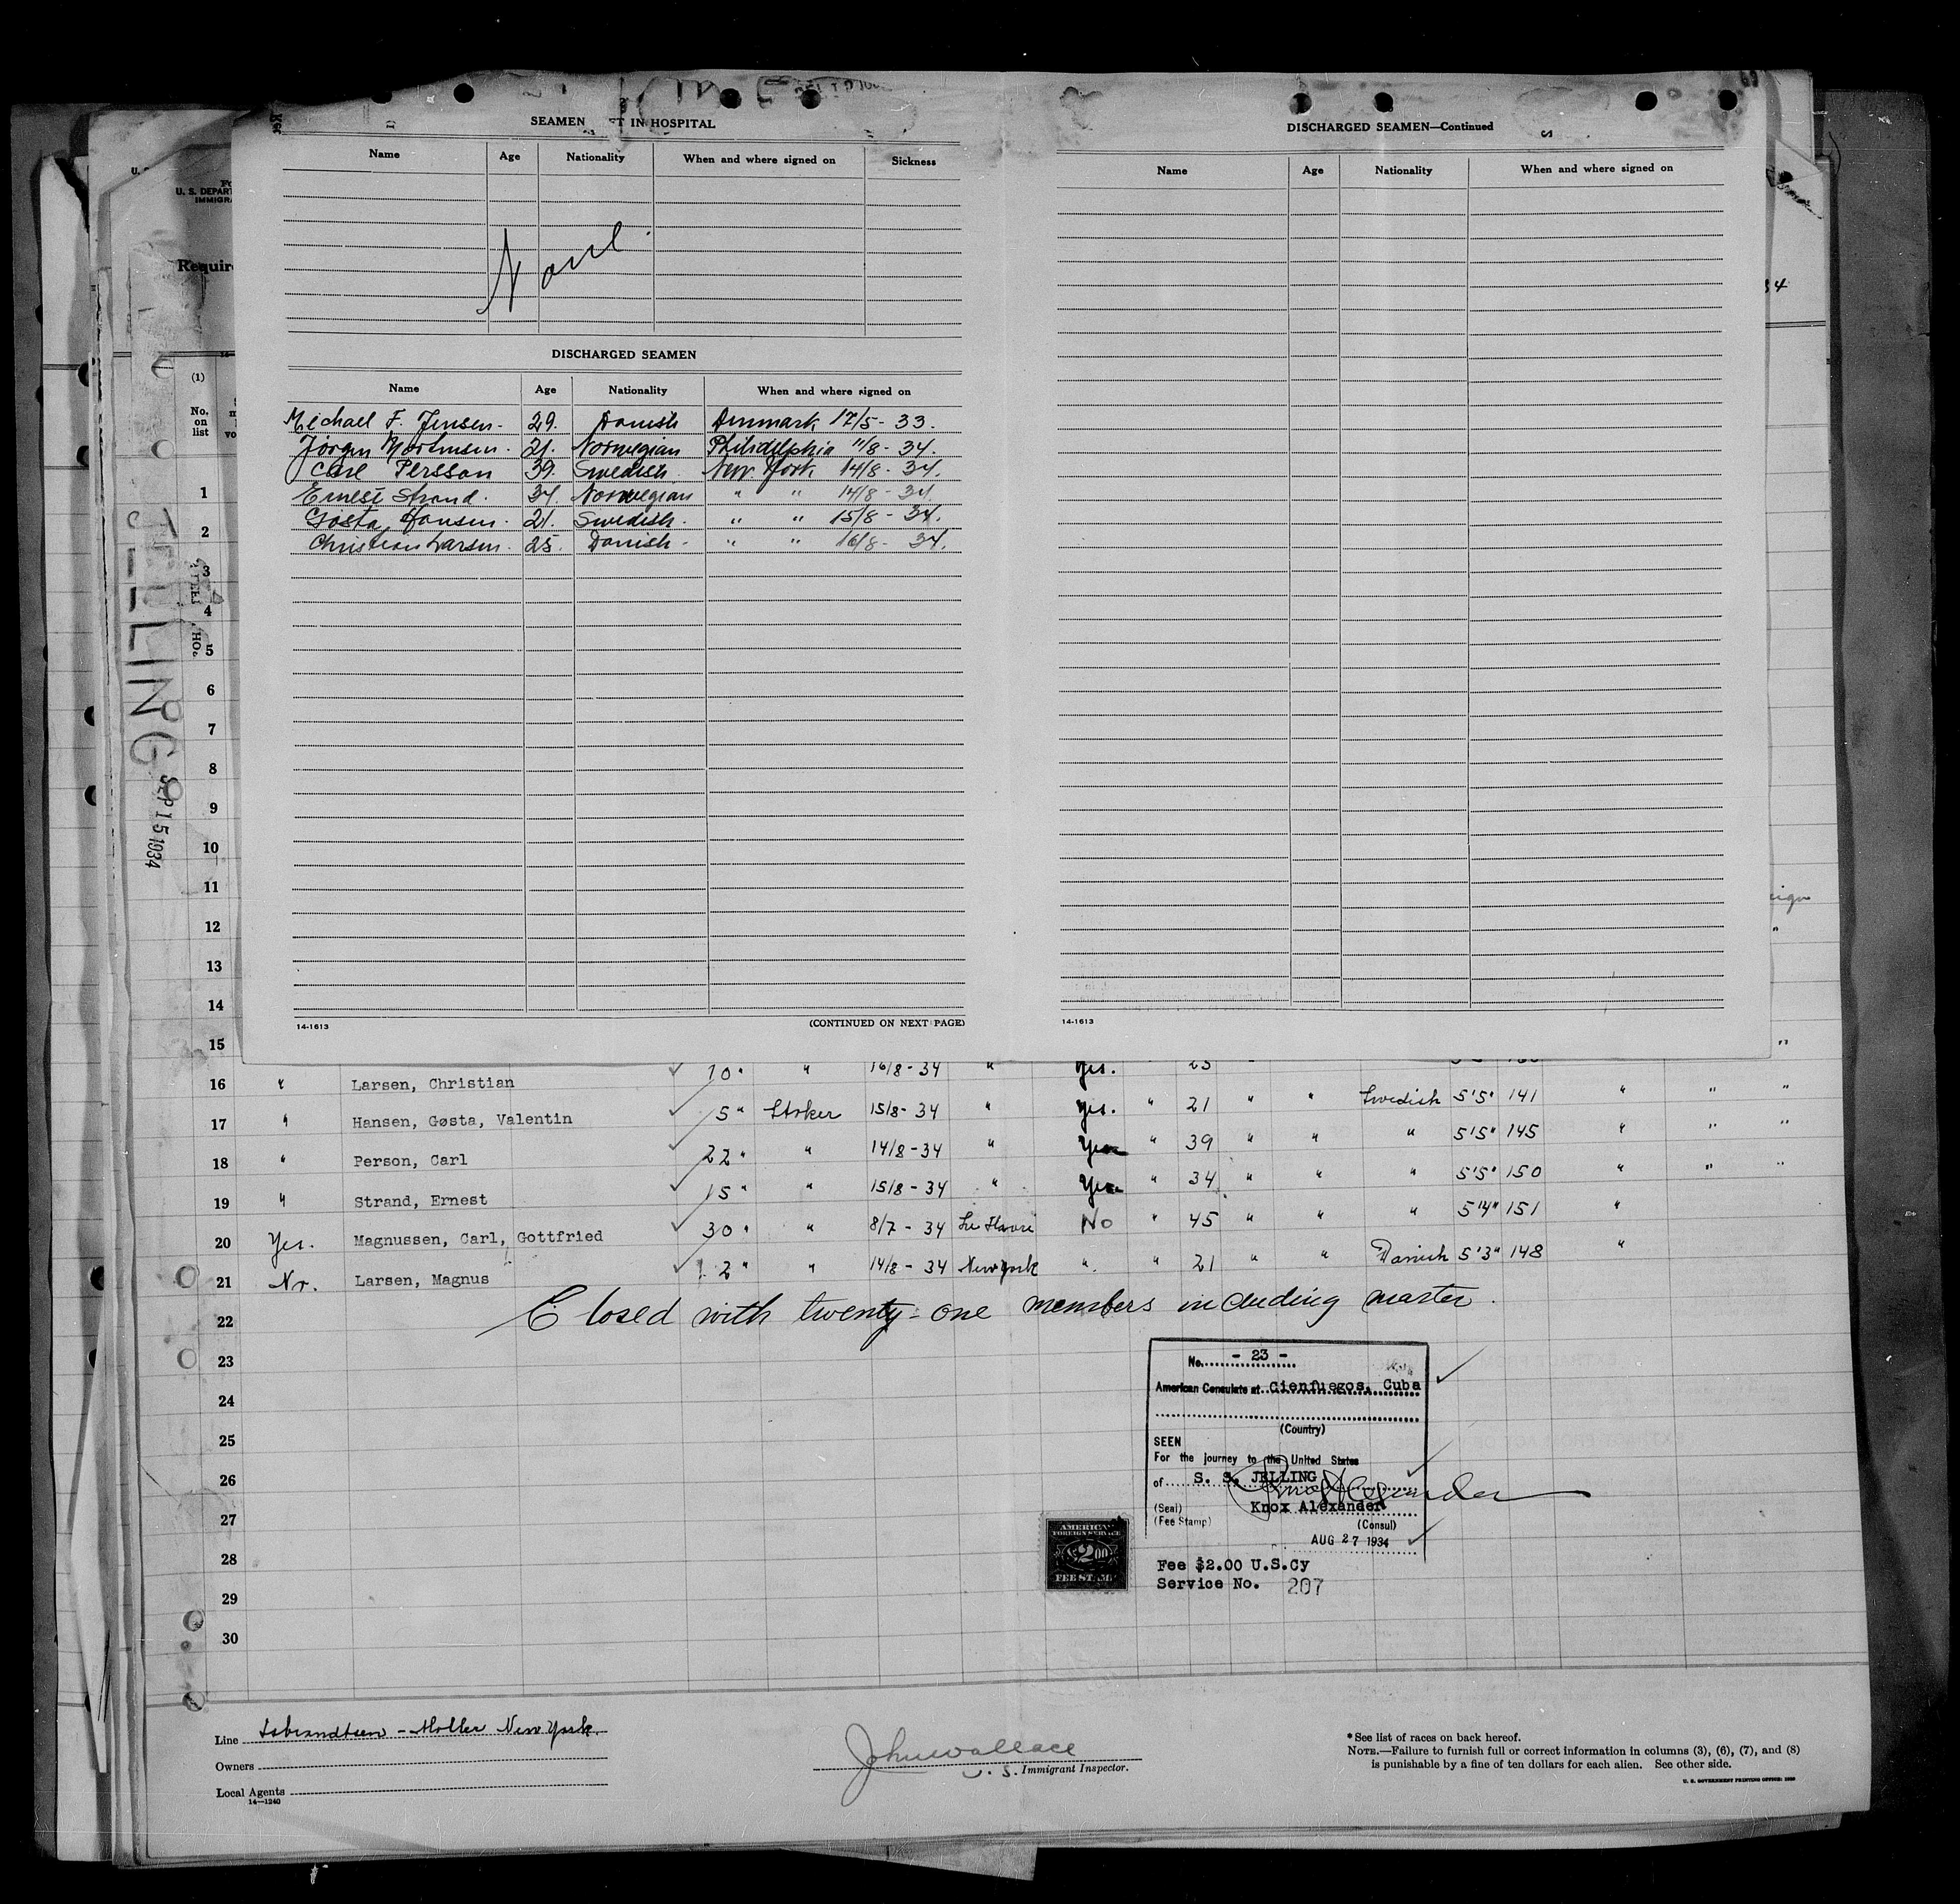 SEAMEN T IN HOSPITAL
Name Age Nationality When and where signed on Sickness
None
DISCHARGED SEAMEN
Name Age Nationality When and where signed on
Michael F. Jensen. 29. Danish Denmark 17/5 - 33.
Jörgen Mortensen. 21. Norwegian Philidelphia 11/8 - 34.
Carl Persson 39. Swedish New York 14/8 - 34.
Ernest Strand. 34. Norwegian " " 14/8 - 34.
Gösta Hansen. 21. Swedish. " " 15/8 - 34.
Christian Larsen. 25. Danish. " " 16/8 - 34.
14-1613 (CONTINUED ON NEXT PAGE)
DISCHARGED SEAMEN—Continued
Name Age Nationality When and where signed on
14-1613
U. S. DEPART
IMMIGRA
Require
(1)
No. on list
JELLING
SEP 15 1934
1
2
3
4
5
6
7
8
9
10
11
12
13
14
15
16 " Larsen, Christian 10" " 16/8-34 " Yes. " 25 "
17 " Hansen, Gøsta, Valentin 5" Stoker 15/8-34 " Yes. " 21 " " Swedish 5'5" 141 " " "
18 " Person, Carl 22" " 14/8-34 " Yes " 39 " " " 5'5" 145 " " "
19 " Strand, Ernest 15" " 15/8-34 " Yes " 34 " " " 5'5" 150 " " "
20 Yes. Magnussen, Carl, Gottfried 30" " 8/7-34 Le Havre No " 45 " " " 5'4" 151 "
21 No. Larsen, Magnus 2" " 14/8-34 New York " " 21 " " Danish 5'3" 148 "
22 Closed with twenty-one members including master.
23
24
25
26
27
28
29
30
No. - 23 -
American Consulate at Cienfuegos, Cuba
(Country)
SEEN
For the journey to the United States
of S. S. JELLING
Knox Alexander
(Seal) Knox Alexander
(Fee Stamp) (Consul)
AUG 27 1934
AMERICAN
FOREIGN SERVICE
$2.00
FEE STAMP
Fee $2.00 U.S.Cy
Service No. 207
Line Isbrandtsen - Moller New York.
Owners
Local Agents
14—1240
John Wallace
U. S. Immigrant Inspector.
* See list of races on back hereof.
NOTE.—Failure to furnish full or correct information in columns (3), (6), (7), and (8)
is punishable by a fine of ten dollars for each alien. See other side.